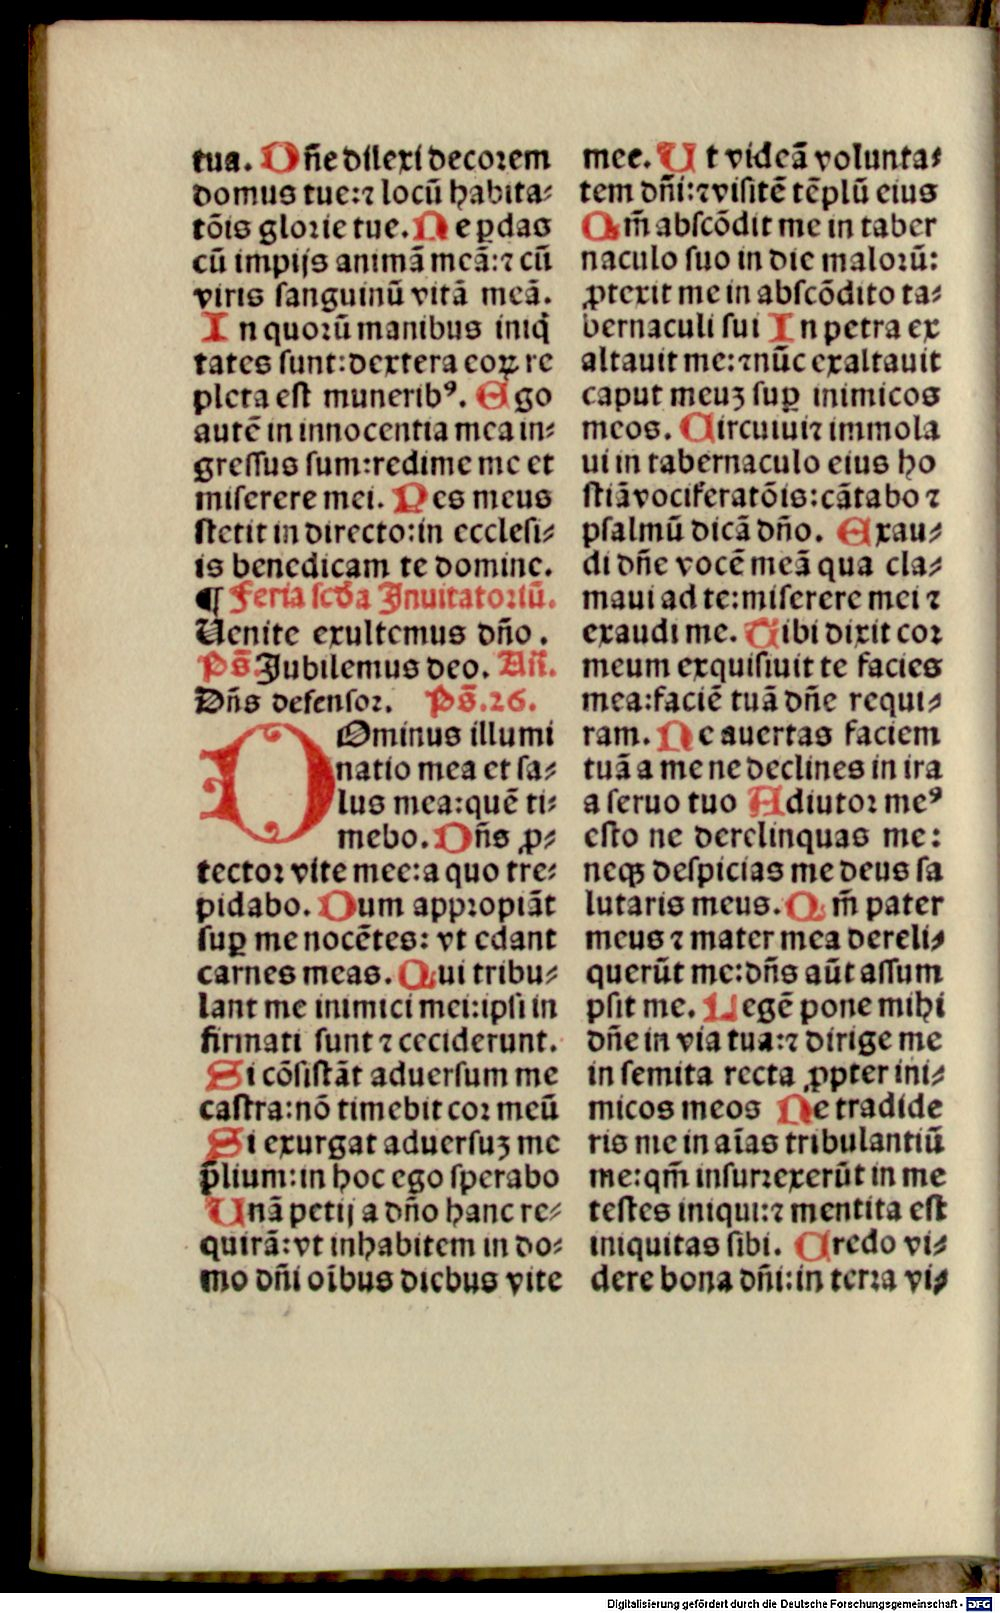 tua. Dñe dilexi decorem
domus tue:⁊ locũ habita⸗
tõis glorie tue. Ne ꝑdas
cũ impijs animã meã:⁊ cũ
viris sanguinũ vitã meã.
In quorũ manibus iniq̇
tates sunt: dextera eoꝝ re
pleta est munerib⁹. Ego
autẽ in innocentia mea in⸗
gressus sum:redime me et
miserere mei. Pes meus
stetit in directo:in ecclesi⸗
is benedicam te domine.
¶ Feria scďa Inuitatoriũ.
Uenite exultemus dño.
Ps̃. Jubilemus deo. Añ.
Dñs defensor. Ps̃.26.
DOminus illumi
natio mea et sa⸗
lus mea:quẽ ti⸗
mebo. Dñs ꝓ⸗
tector vite mee:a quo tre⸗
pidabo. Dum appropiãt
suꝑ me nocẽtes: vt edant
carnes meas. Qui tribu⸗
lant me inimici mei:ipsi in
firmati sunt ⁊ ceciderunt.
Si cõsistãt aduersum me
castra:nõ timebit cor meũ
Si exurgat aduersuꝫ me
p̃lium:in hoc ego sperabo
Unã petij a dño hanc re⸗
quirã:vt inhabitem in do⸗
mo dñi oĩbus diebus vite
mee. Ut videã volunta⸗
tem dñi:⁊ visitẽ tẽplũ eius
Qm̃ abscõdit me in taber
naculo suo in die malorũ:
ꝓtexit me in abscõdito ta⸗
bernaculi sui In petra ex
altauit me:⁊ nũc exaltauit
caput meuꝫ suꝑ inimicos
meos. Circuiui⁊ immola
ui in tabernaculo eius ho
stiã vociferatõis:cãtabo ⁊
psalmũ dicã dño. Exau⸗
di dñe vocẽ meã qua cla⸗
maui ad te:miserere mei ⁊
exaudi me. Tibi dixit cor
meum exquisiuit te facies
mea:faciẽ tuã dñe requi⸗
ram. Ne auertas faciem
tuã a me ne declines in ira
a seruo tuo Adiutor me⁹
esto ne derelinquas me:
neqꝫ despicias me deus sa
lutaris meus. Qm̃ pater
meus ⁊ mater mea dereli⸗
querũt me:dñs aũt assum
psit me. Legẽ pone mihi
dñe in via tua:⁊ dirige me
in semita recta ꝓpter ini⸗
micos meos Ne tradide
ris me in aĩas tribulantiũ
me:qm̃ insurrexerũt in me
testes iniqui:⁊ mentita est
iniquitas sibi. Credo vi⸗
dere bona dñi:in terra vi⸗
Digitalisierung gefördert durch die Deutsche Forschungsgemeinschaft - DFG